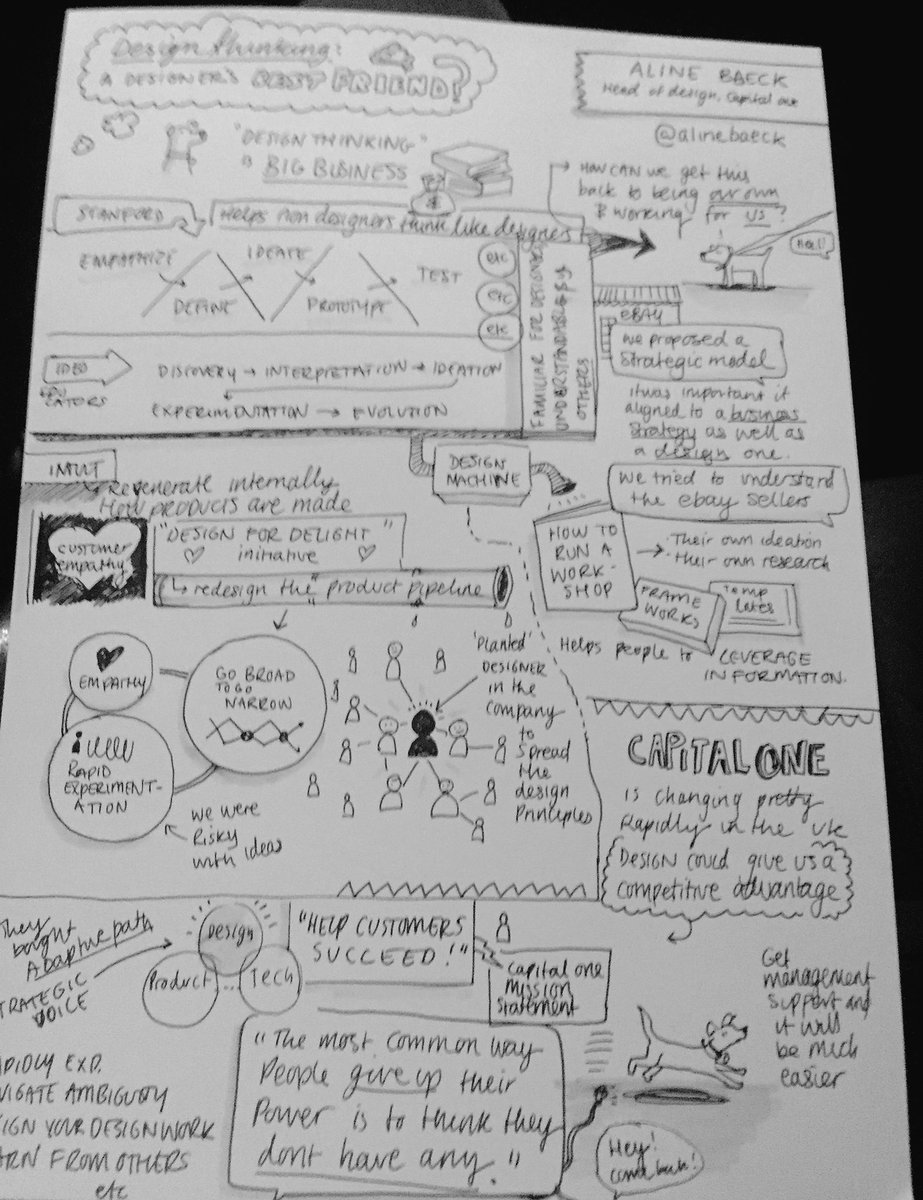 Design thinking:
A DESIGNER'S BEST FRIEND?
ALINE BAECK
Head of design, Capital one
@alinebaeck
"DESIGN THINKING"
IS BIG BUSINESS
STANFORD
Helps non designers think like designers
EMPATHIZE
DEFINE
IDEATE
PROTOTYPE
TEST
etc
etc
etc
FAMILIAR FOR DESIGNERS
UNDERSTANDABLE BY
OTHERS
IDEO
DISCOVERY → INTERPRETATION → IDEATION
EXPERIMENTATION → EVOLUTION
HOW CAN WE get this
back to being our own
& working for us?
HELP!
eBAY
we proposed a
strategic model
It was important it
aligned to a business
strategy as well as
a design one.
we tried to understand
the ebay sellers
→ Their own ideation
their own research
DESIGN
MACHINE
HOW TO
RUN A
WORK-
SHOP
FRAME
WORKS
Temp
lates
Helps people to
LEVERAGE
INFORMATION.
INTUIT
Regenerate internally
How PRODUCTS ARE MADE
customer
empathy
"DESIGN FOR DELIGHT"
initiative
↳ redesign the "product pipeline"
EMPATHY
GO BROAD
TO GO
NARROW
RAPID
EXPERIMENT-
ATION
we were
Risky
with ideas
'Planted'
DESIGNER
in the
company
to
Spread
the
design
Principles
CAPITAL ONE
is changing pretty
Rapidly in the UK
DESIGN could give us a
competitive advantage
Get
management
support and
it will
be much
easier
They
bought
Adaptive path
STRATEGIC
VOICE
Design
Product
...
Tech
"HELP CUSTOMERS
SUCCEED!"
Capital one
mission
statement
"The most common way
People give up their
Power is to think they
dont have any."
Hey!
come back!
PIDLY EXP.
VIGATE AMBIGUITY
SIGN YOUR DESIGN WORK
ARN FROM OTHERS
etc